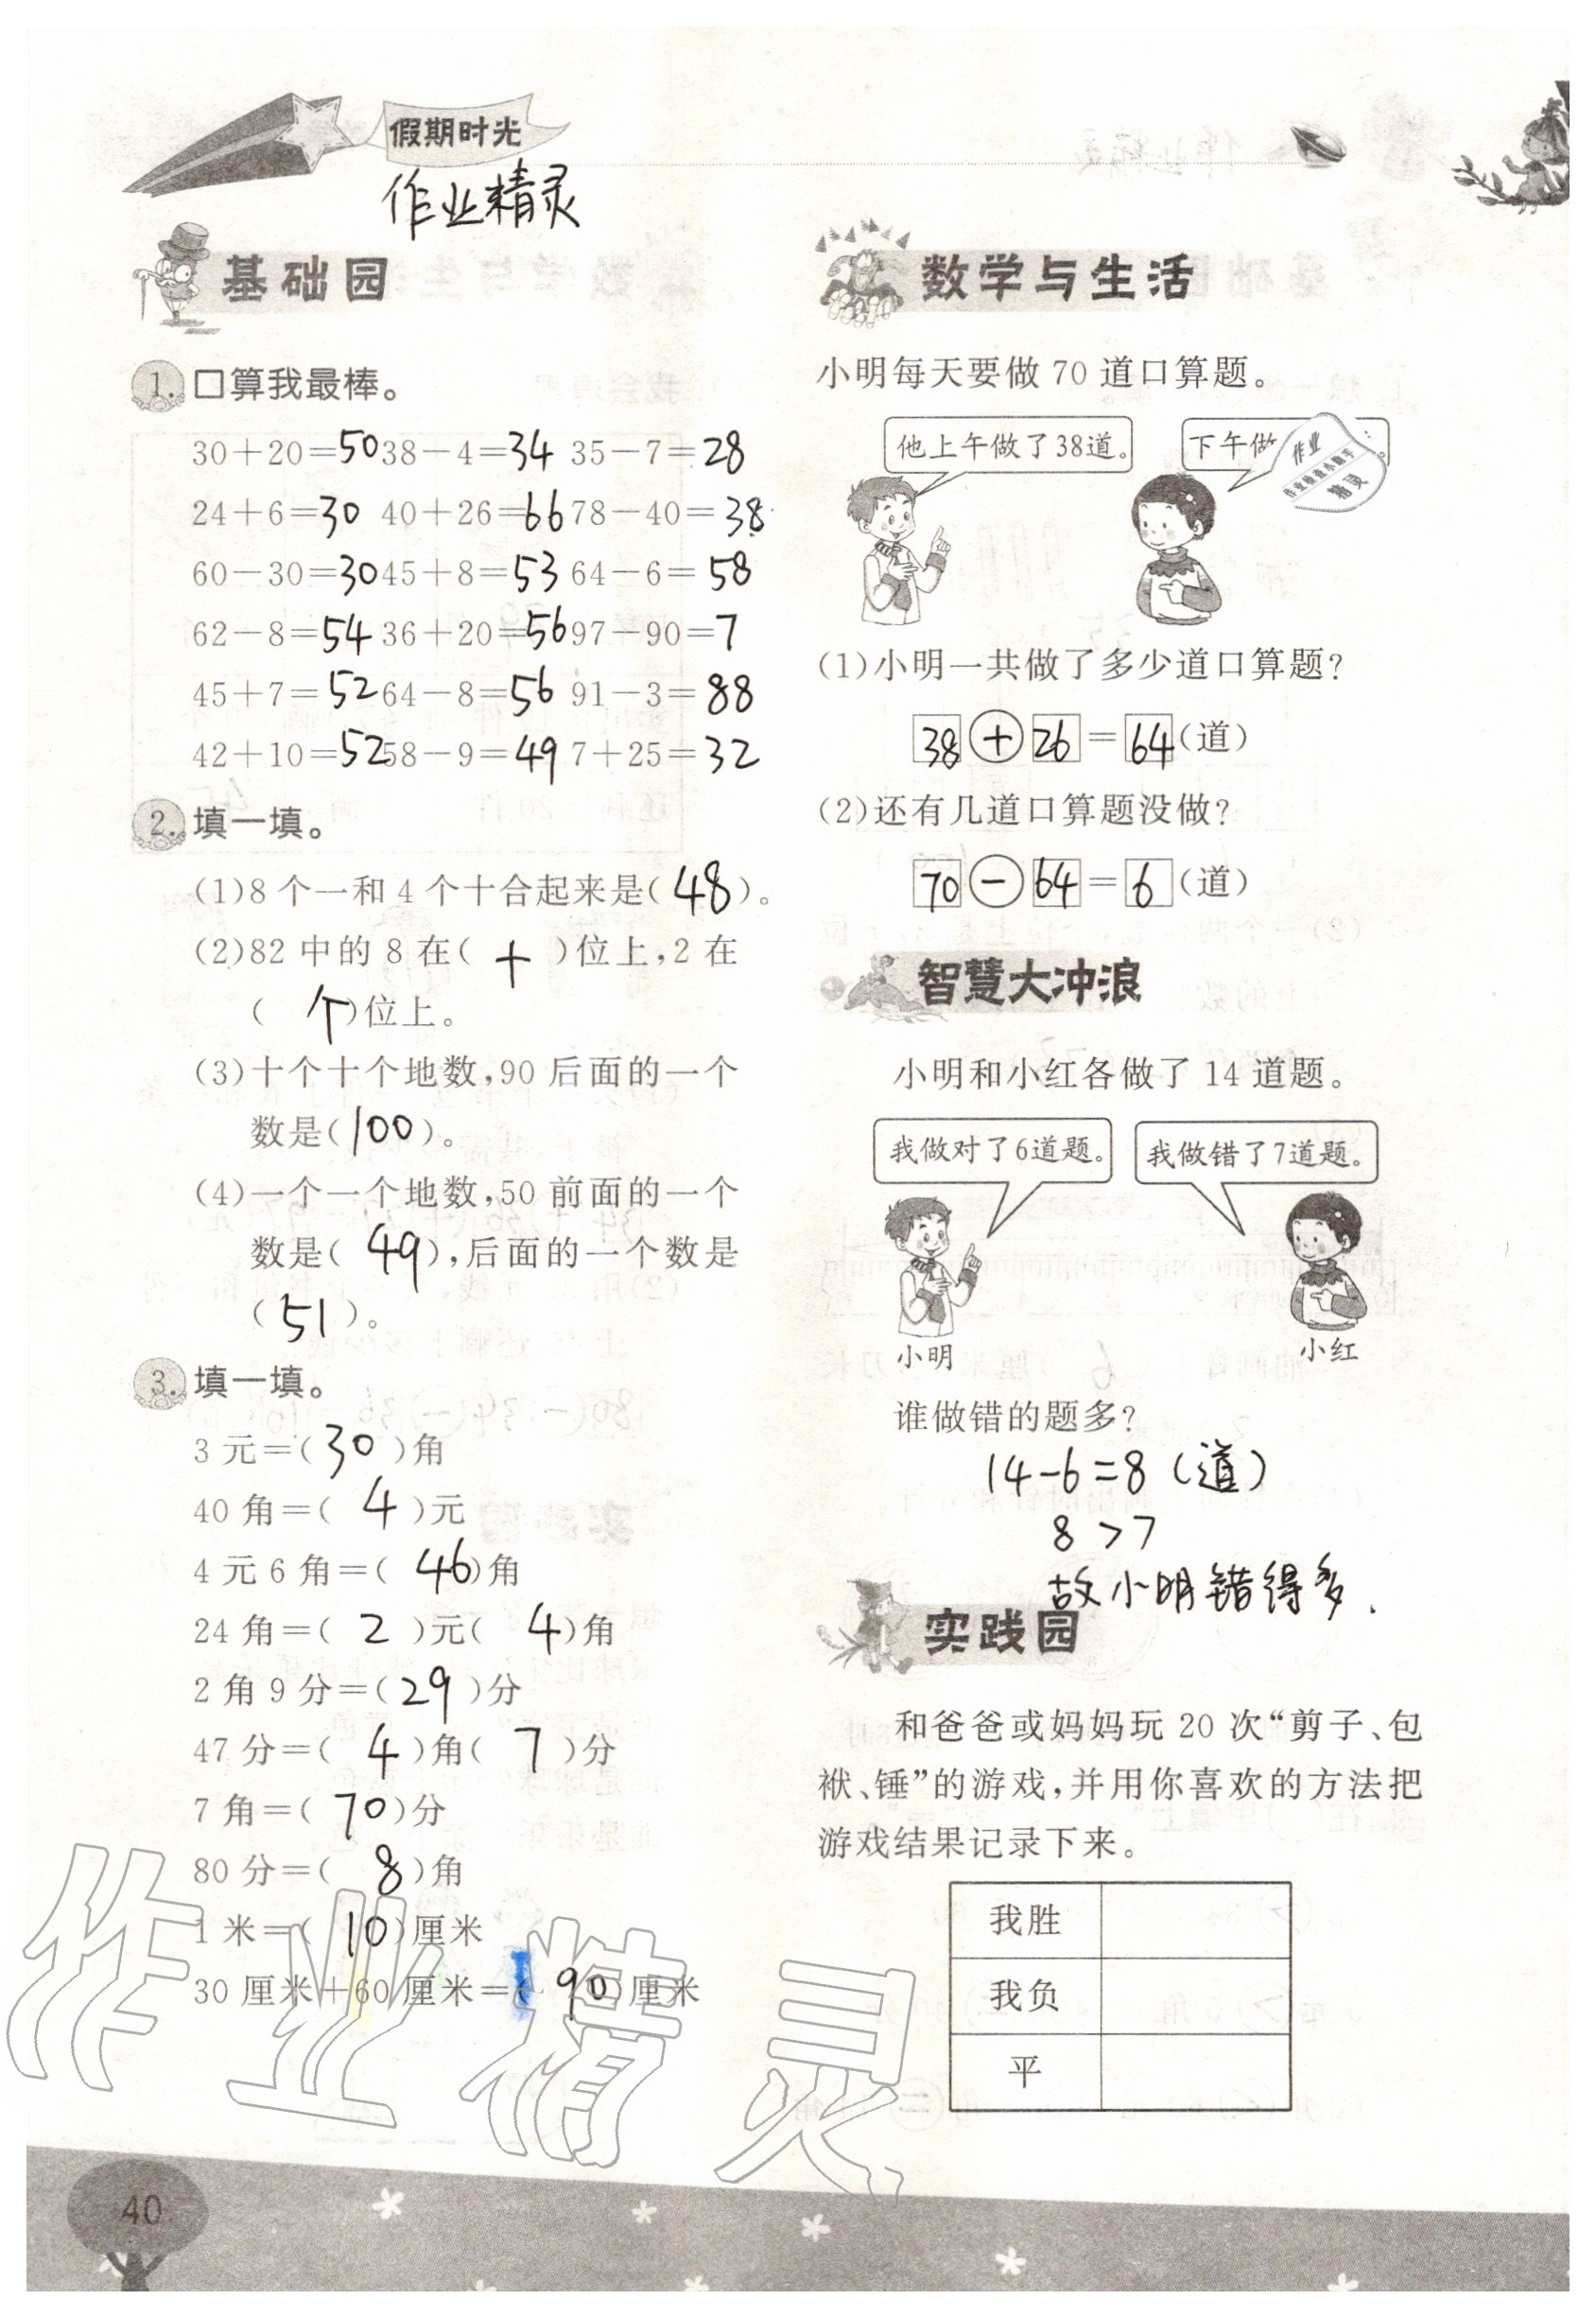 假期时光
作业精灵
基础园
1. 口算我最棒。
30＋20＝50 38－4＝34 35－7＝28
24＋6＝30 40＋26＝66 78－40＝38
60－30＝30 45＋8＝53 64－6＝58
62－8＝54 36＋20＝56 97－90＝7
45＋7＝52 64－8＝56 91－3＝88
42＋10＝52 58－9＝49 7＋25＝32
2. 填一填。
(1)8个一和4个十合起来是(48)。
(2)82中的8在(十)位上,2在
(个)位上。
(3)十个十个地数,90后面的一个
数是(100)。
(4)一个一个地数,50前面的一个
数是(49),后面的一个数是
(51)。
3. 填一填。
3元＝(30)角
40角＝(4)元
4元6角＝(46)角
24角＝(2)元(4)角
2角9分＝(29)分
47分＝(4)角(7)分
7角＝(70)分
80分＝(8)角
1米＝(10)厘米
30厘米＋60厘米＝(90)厘米
数学与生活
小明每天要做70道口算题。
他上午做了38道。
下午做
作业
作业检查小助手
精灵
(1)小明一共做了多少道口算题?
38＋26＝64(道)
(2)还有几道口算题没做?
70－64＝6(道)
智慧大冲浪
小明和小红各做了14道题。
我做对了6道题。
我做错了7道题。
小明
小红
谁做错的题多?
14-6=8(道)
8>7
故小明错得多.
实践园
和爸爸或妈妈玩20次“剪子、包
袱、锤”的游戏,并用你喜欢的方法把
游戏结果记录下来。
我胜
我负
平
作业精灵
40